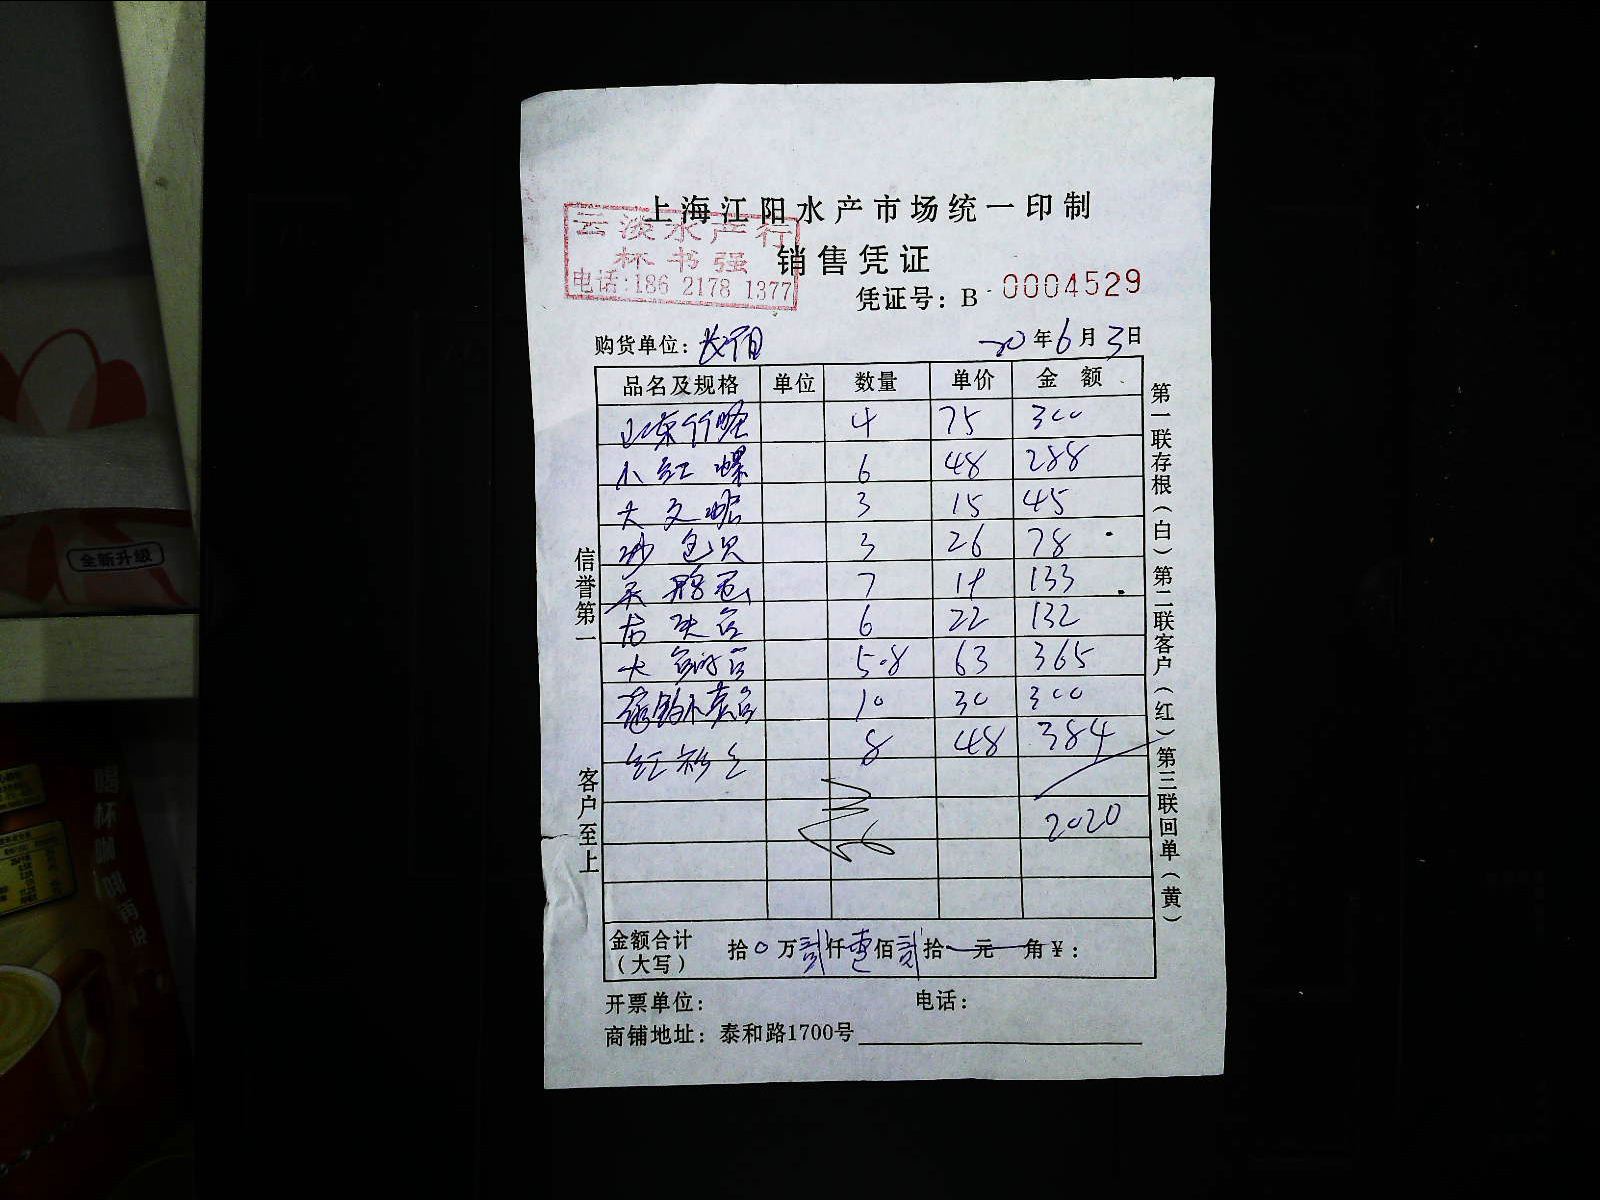 上海江阳水产市场统一印制
云淡水产行
林书强
电话:186 2178 1377
销售凭证
凭证号: B 0004529
购货单位:
20年6月3日
品名及规格 单位 数量 单价 金额
山东竹蛏 4 75 300
小红螺 6 48 288
大文蛤 3 15 45
沙包贝 3 26 78
7 19 133
龙头 6 22 132
大 5.8 63 365
10 30 300
红衫 8 48 384
2020
金额合计(大写) 拾0万贰仟壹佰贰拾 元 角¥:
开票单位: 电话:
商铺地址: 泰和路1700号
信誉第一
客户至上
第一联存根(白)第二联客户(红)第三联回单(黄)
全新升级
喝杯咖啡再说